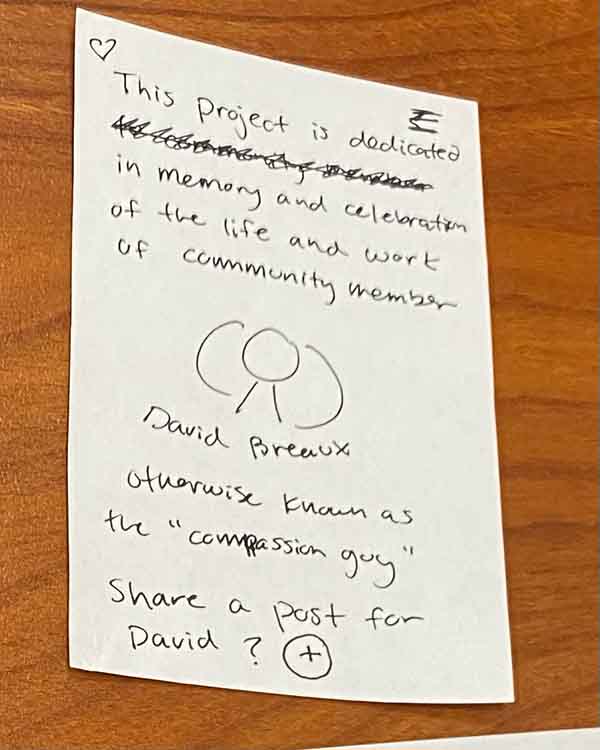 This project is dedicated
in memory and celebration
of the life and work
of community member
David Breaux
otherwise known as
the "compassion guy"
Share a post for
David ? +